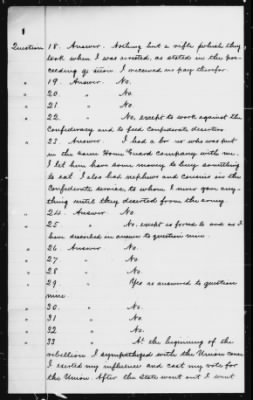 Question 18. Answer. Nothing but a rifle which they
took when I was arrested, as stated in the pre-
ceeding question I received no pay therefor.
" 19. Answer. No.
" 20. " No.
" 21. " No.
" 22. " No, except to work against the
Confederacy and to feed Confederate deserters.
" 23. Answer. I had a bro who was put
in the same Home Guard company with me.
I let him have some money to buy something
to eat. I also had nephews and cousins in the
Confederate service, to whom I never gave any-
thing until they deserted from the army.
" 24. Answer No.
" 25 " No, except as forced to and as I
have described in answer to question nine.
" 26 Answer. No.
" 27 " No.
" 28 " No.
" 29 " Yes as answered to question
nine
" 30. " No.
" 31. " No.
" 32. " No.
" 33 " At the beginning of the
rebellion I sympathized with the Union cause
I exerted my influence and cast my vote for
the Union. After the state went out I went